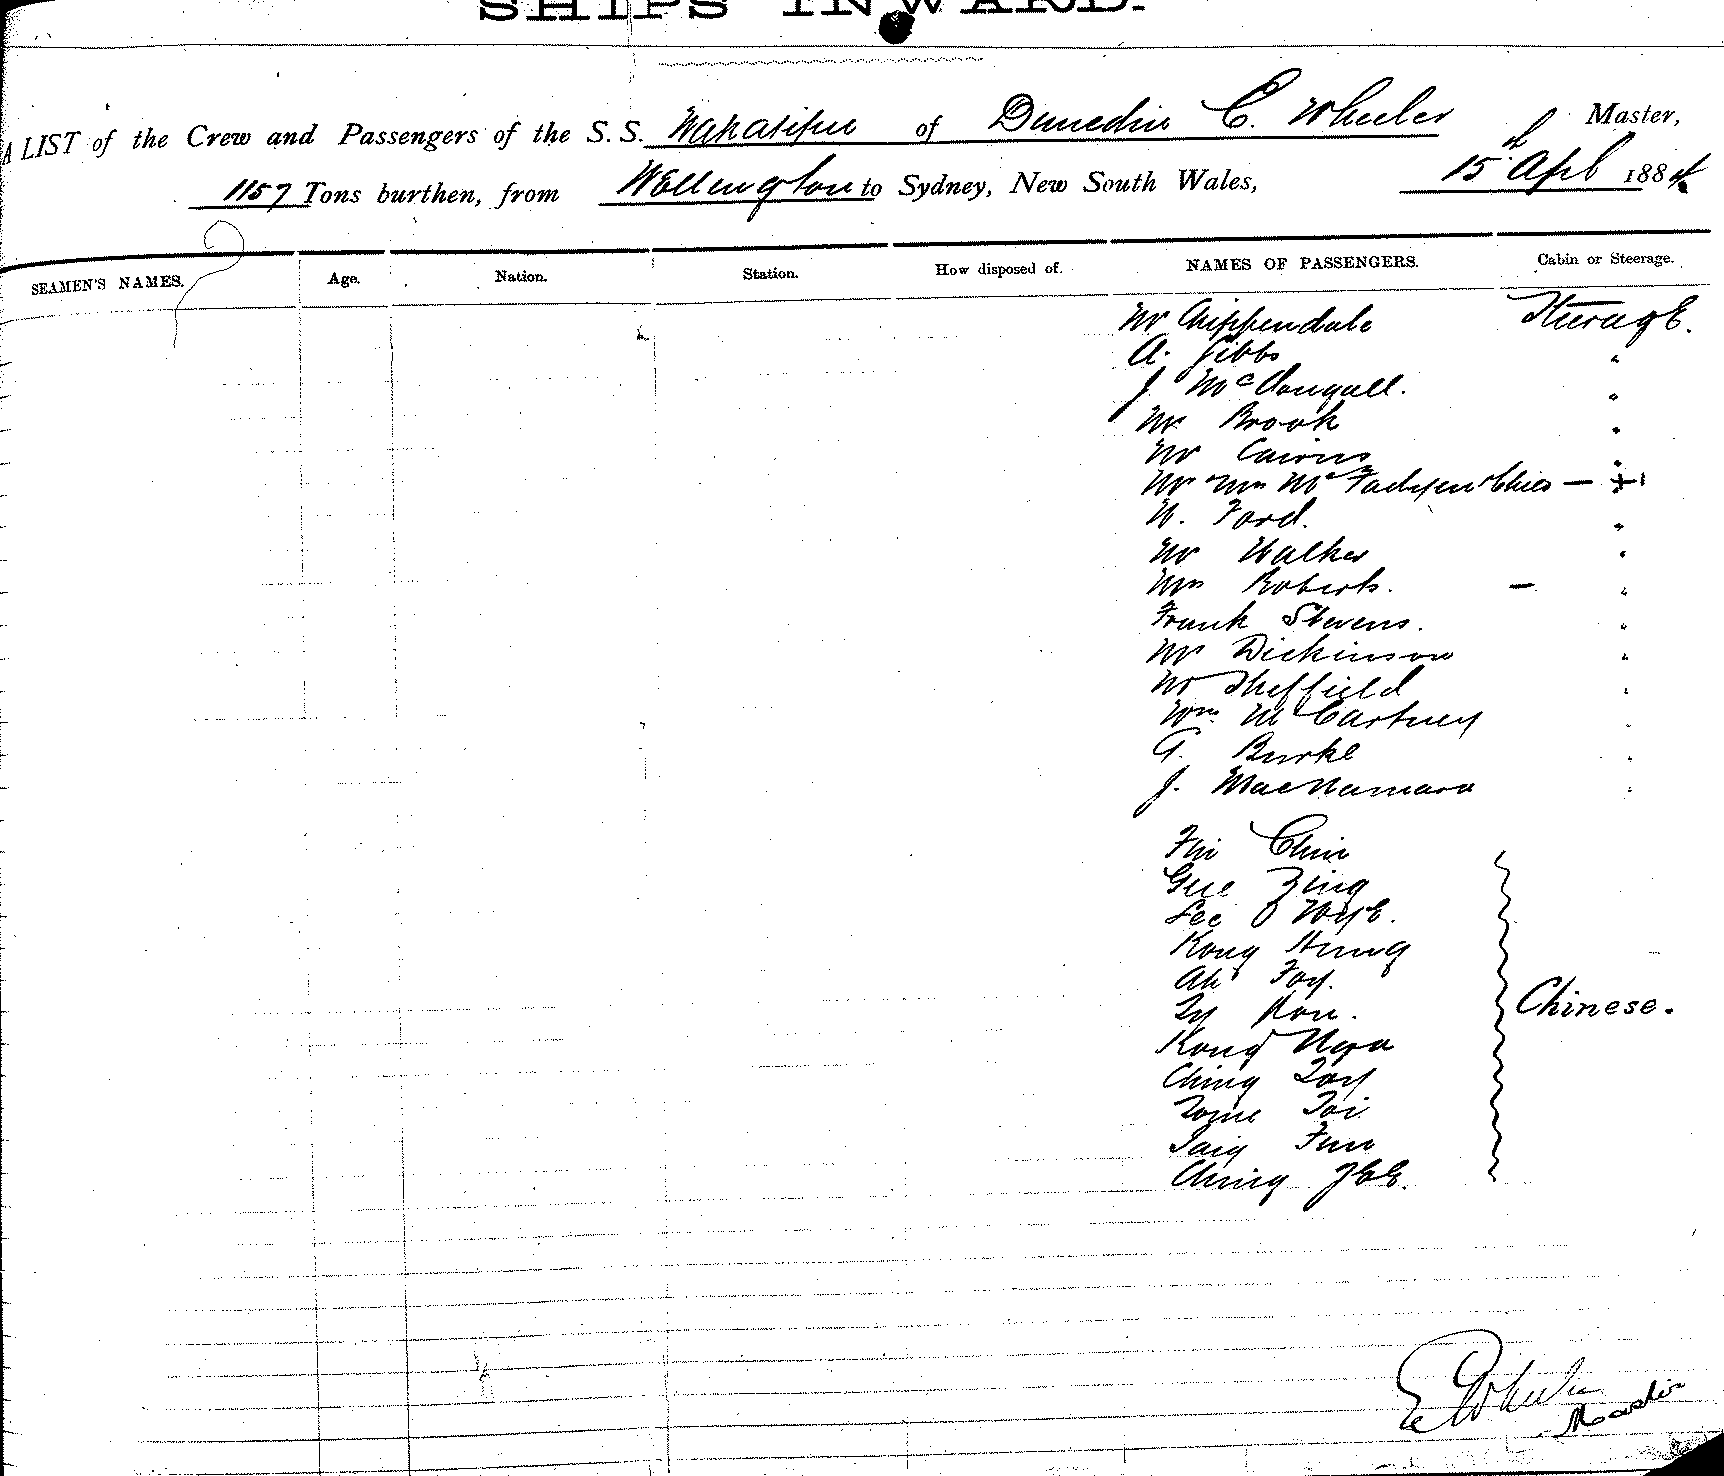 SHIPS INWARD.
A LIST of the Crew and Passengers of the S.S. Wakatipu of Dunedin E. Wheeler Master,
1157 Tons burthen, from Wellington to Sydney, New South Wales, 15th Apl 1884
SEAMEN'S NAMES. Age. Nation. Station. How disposed of. NAMES OF PASSENGERS. Cabin or Steerage.
Mr Chippendale Steerage.
A. Gibbs "
J McDougall. "
Mr Brook "
Mr Cairns "
Mr Mrs "
W. Ford. "
Mr Walker "
Mrs Roberts. — "
Frank Stevens. "
Mr Dickinson "
Mr Sheffield "
Wm McCartney "
G. Burke "
J. MacNamara "
Chin
Gue
Lee
Kong Hung
Ah Foy.
Chinese.
Kong
Ching
Toi
Fun
Ching
E Wheeler
Master